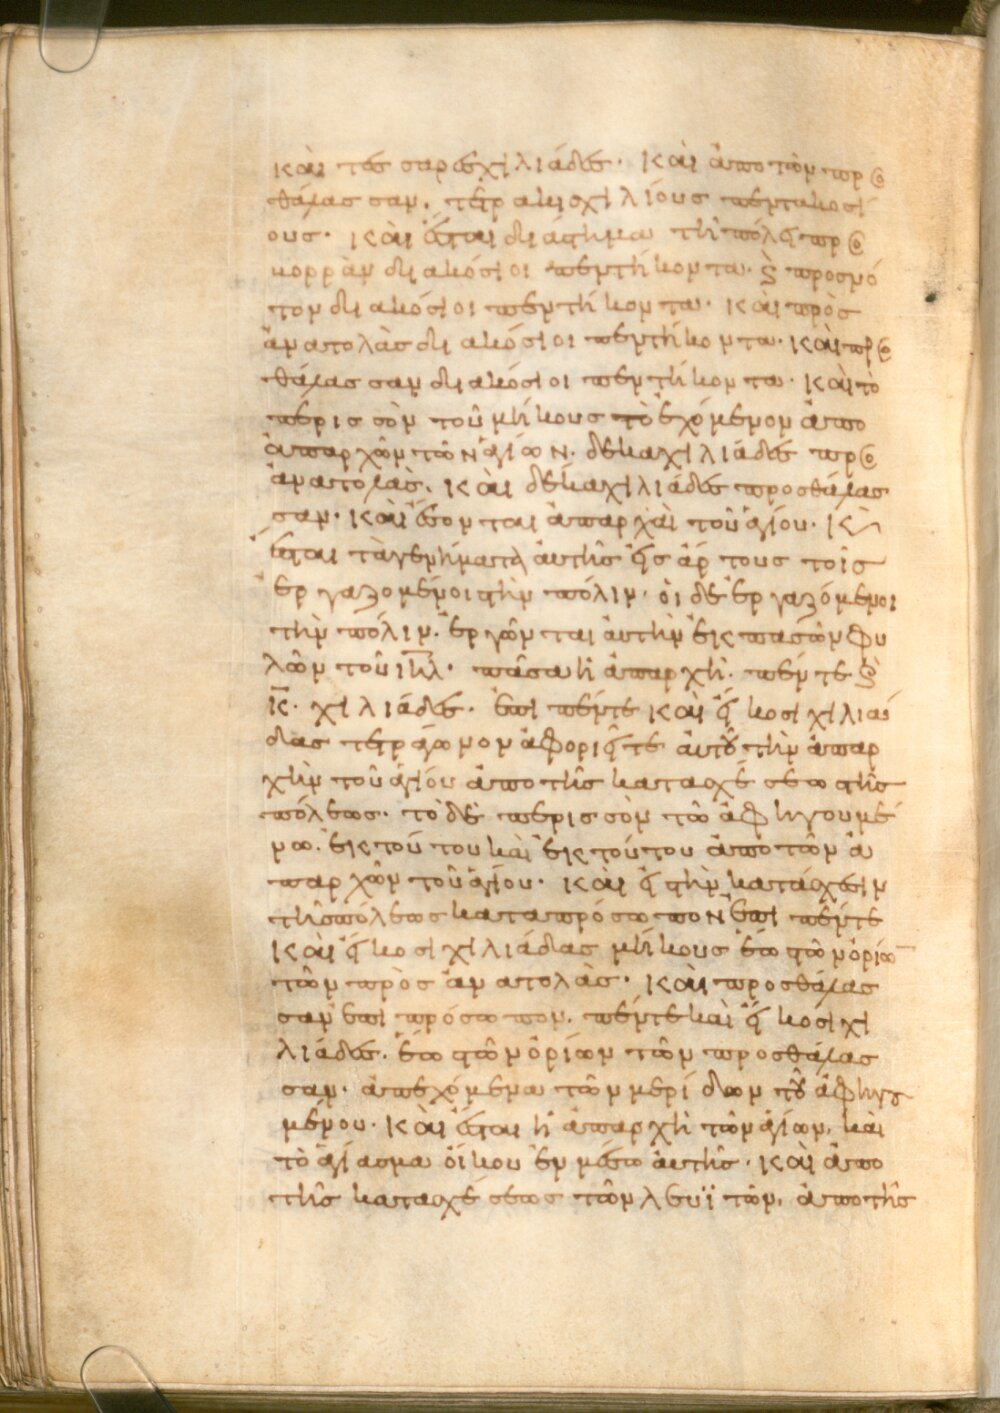 καὶ τέσσαρες χιλιάδες· καὶ ἀπο τῶν πρ(ὸς)
θάλασσαν, τετρακισχιλίους πεντακοσί
ους· καὶ ἔσται διάστημα τῆ πόλει πρ(ὸς)
νορρὰν διακόσιοι πεντήκοντα· ϗ προσνό
τον διακόσιοι πεντήκοντα· καὶ πρὸς
ἀνατολὰς διακόσιοι πεντήκοντα· καὶ πρ(ὸς)
θάλασσαν διακόσιοι πεντήκοντα· καὶ τὸ
πέρισσὸν τοῦ μήκους τὸ ἐχόμενον ἀπο
ἀπαρχῶν τῶν ἁγίων· δέκα χιλιάδες πρ(ὸς)
ἀνατολὰς, καὶ δέκα χιλιάδες προσθάλασ
σαν· καὶ ἔσονται ἀπαρχαὶ τοῦ ἁγίου· κ(αὶ)
ἔσται τὰ γενήματα ἀυτῆς εἰς ἄρτους τοῖς
ἐργαζομένοι τὴν πόλιν· οἱ δὲ ἐργαζόμενοι
τὴν πόλιν· ἐργῶνται ἀυτὴν ἐις πασῶν φυ
λῶν τοῦ ιη̅λ· πᾶσα ἡ ἀπαρχὴ· πέντε ϗ
κ̅· χιλιάδες· ἐπι πέντε καὶ εἴκοσι χιλιά
δας τετράγωνον ἀφοριεῖτε ἀυτοῦ τὴν ἀπαρ
χὴν τοῦ ἁγίου ἀπο τῆς κατασχέσεως τῆς
πόλεως· τὸ δὲ πέρισσὸν τῶ ἀφηγουμέ
νω· ἐις τούτου καὶ ἐις τούτου ἀπὸ τῶν ἀ
παρχῶν τοῦ ἁγίου· καὶ εἰς τὴν κατάσχεσιν
τῆς πόλεως καταπρόσωπον ἐπι πέντε
καὶ εἴκοσι χιλιάδας μήκους ἕως τῶν ὁρίω
τῶν πρὸς ἀνατολὰς· καὶ προσθάλασ
σαν ἐπι πρόσωπον· πέντε καὶ εἴκοσι χι
λιάδες· ἕως τῶν ὁρίων τῶν προσθάλασ
σαν· ἀπεχόμενα τῶν μερίδων τοῦ ἀφηγου
μένου· καὶ ἔσται ἡ ἀπαρχὴ τῶν ἁγίων, καὶ
τὸ ἁγίασμα ὄικου ἐν μέσω ἀυτῆς· καὶ ἀπο
τῆς κατασχέσεως τῶν λευϊτῶν, ἀπο τῆς